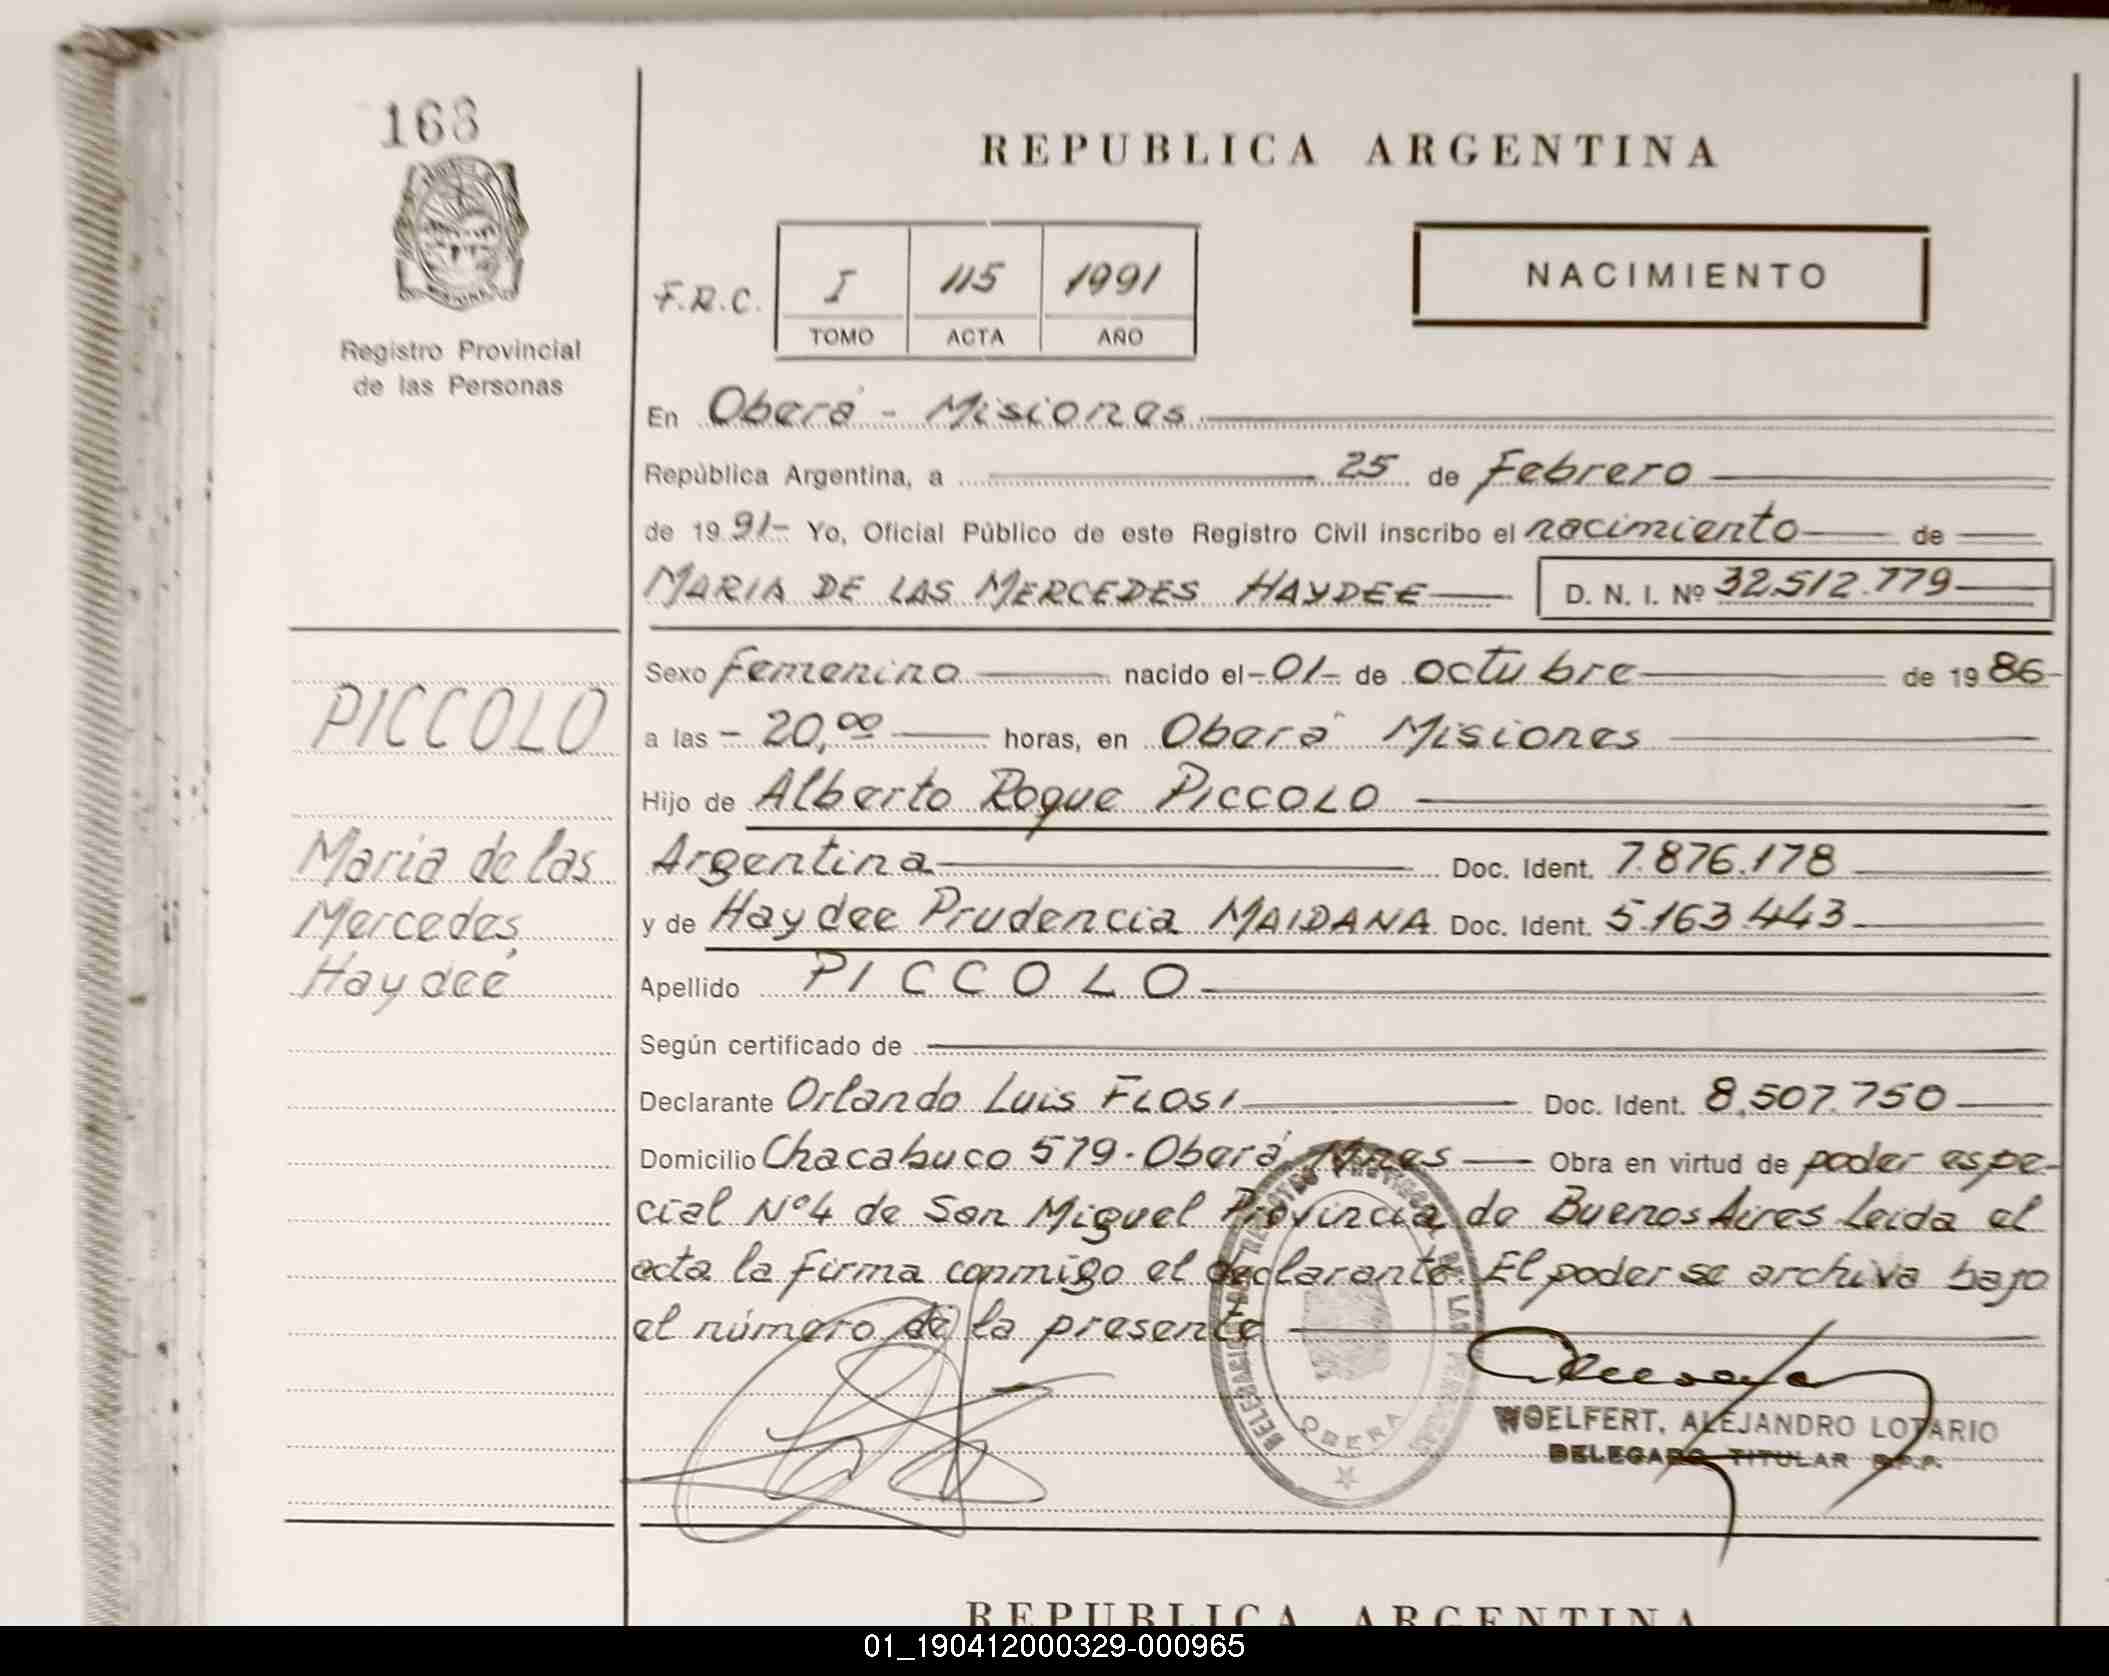 168
REPUBLICA ARGENTINA
NACIMIENTO
F.R.C. I 115 1991
TOMO ACTA AÑO
Registro Provincial
de las Personas
En Oberá - Misiones
República Argentina, a 25 de Febrero
de 1991- Yo, Oficial Público de este Registro Civil inscribo el nacimiento de
MARIA DE LAS MERCEDES HAYDEE D. N. I. Nº 32.512.779
Sexo femenino nacido el -01- de octubre de 1986-
PICCOLO
a las - 20,00 horas, en Oberá Misiones
Hijo de Alberto Roque PICCOLO
Maria de las
Mercedes
Haydeé
Argentina Doc. Ident. 7.876.178
y de Haydee Prudencia MAIDANA Doc. Ident. 5.163.443
Apellido PICCOLO
Según certificado de
Declarante Orlando Luis FLOSI Doc. Ident. 8.507.750
Domicilio Chacabuco 579 - Oberá Mnes Obra en virtud de poder espe-
cial Nº4 de San Miguel Provincia de Buenos Aires Leida el
acta la firma conmigo el declarante. El poder se archiva bajo
el número de la presente
OBERA
WOELFERT, ALEJANDRO LOTARIO
DELEGADO TITULAR R.P.P.
REPUBLICA ARGENTINA
01_190412000329-000965